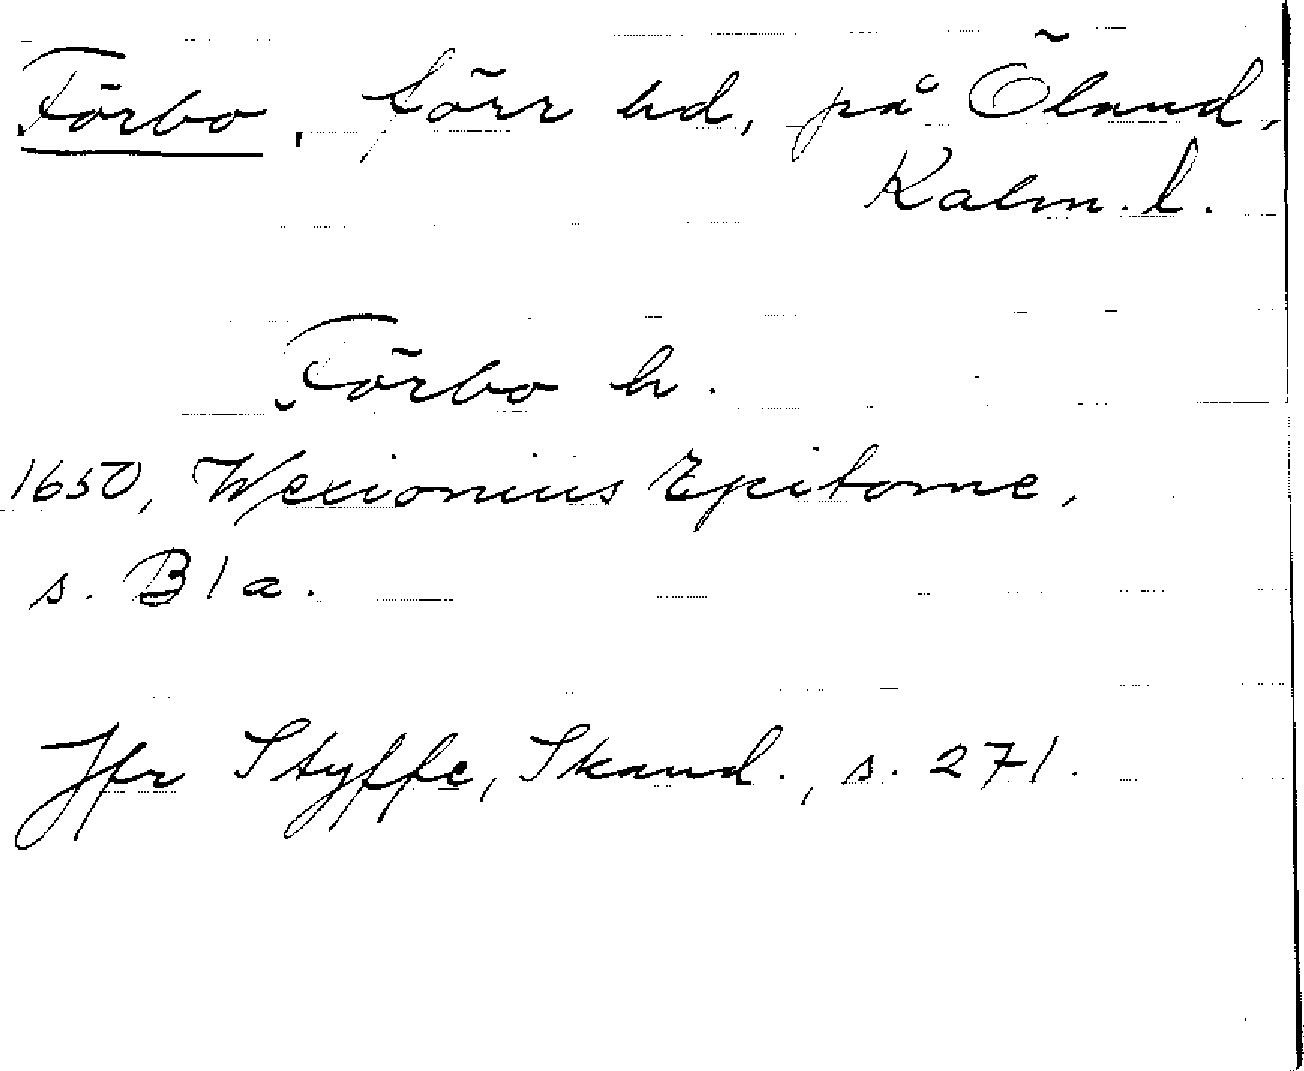 Förbo, förr hd, på Öland,
Kalm. l.
Förbo h.
1650, Wexionius Epitome,
s. B1a.
Jfr Styffe, Skand., s. 271.